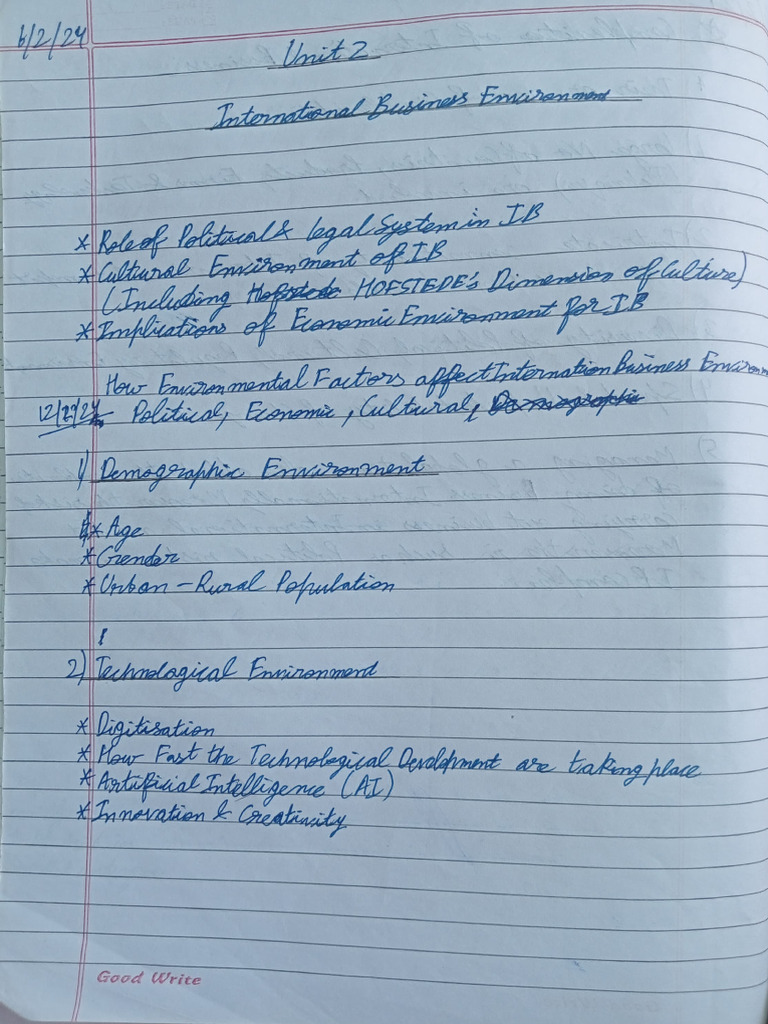 6/2/24
Unit 2
International Business Environment
* Role of Political & legal System in IB
* Cultural Environment of IB
(Including Hofstede HOFSTEDE's Dimension of Culture)
* Implications of Economic Environment for IB
How Environmental Factors affect Internation Business Environm
12/2/24 Political, Economic, Cultural, Demographic
1) Demographic Environment
* Age
* Gender
* Urban - Rural Population
2) Technological Environment
* Digitisation
* How Fast the Technological Development are taking place
* Artificial Intelligence (AI)
* Innovation & Creativity
Good Write